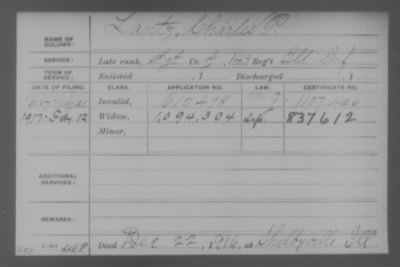 NAME OF
SOLDIER: Lantz, Charles P.
SERVICE: Late rank, Sgt Co. G, 143 Reg't Ill Inf
TERM OF
SERVICE: Enlisted , 1 Discharged , 1
DATE OF FILING. CLASS. APPLICATION NO. LAW. CERTIFICATE NO.
Invalid, 610498
1917-Feby. 12 Widow, 1,094,304 837612
Minor,
ADDITIONAL
SERVICES:
REMARKS:
Died Dec 22, 1916, at Shelbyville Ill